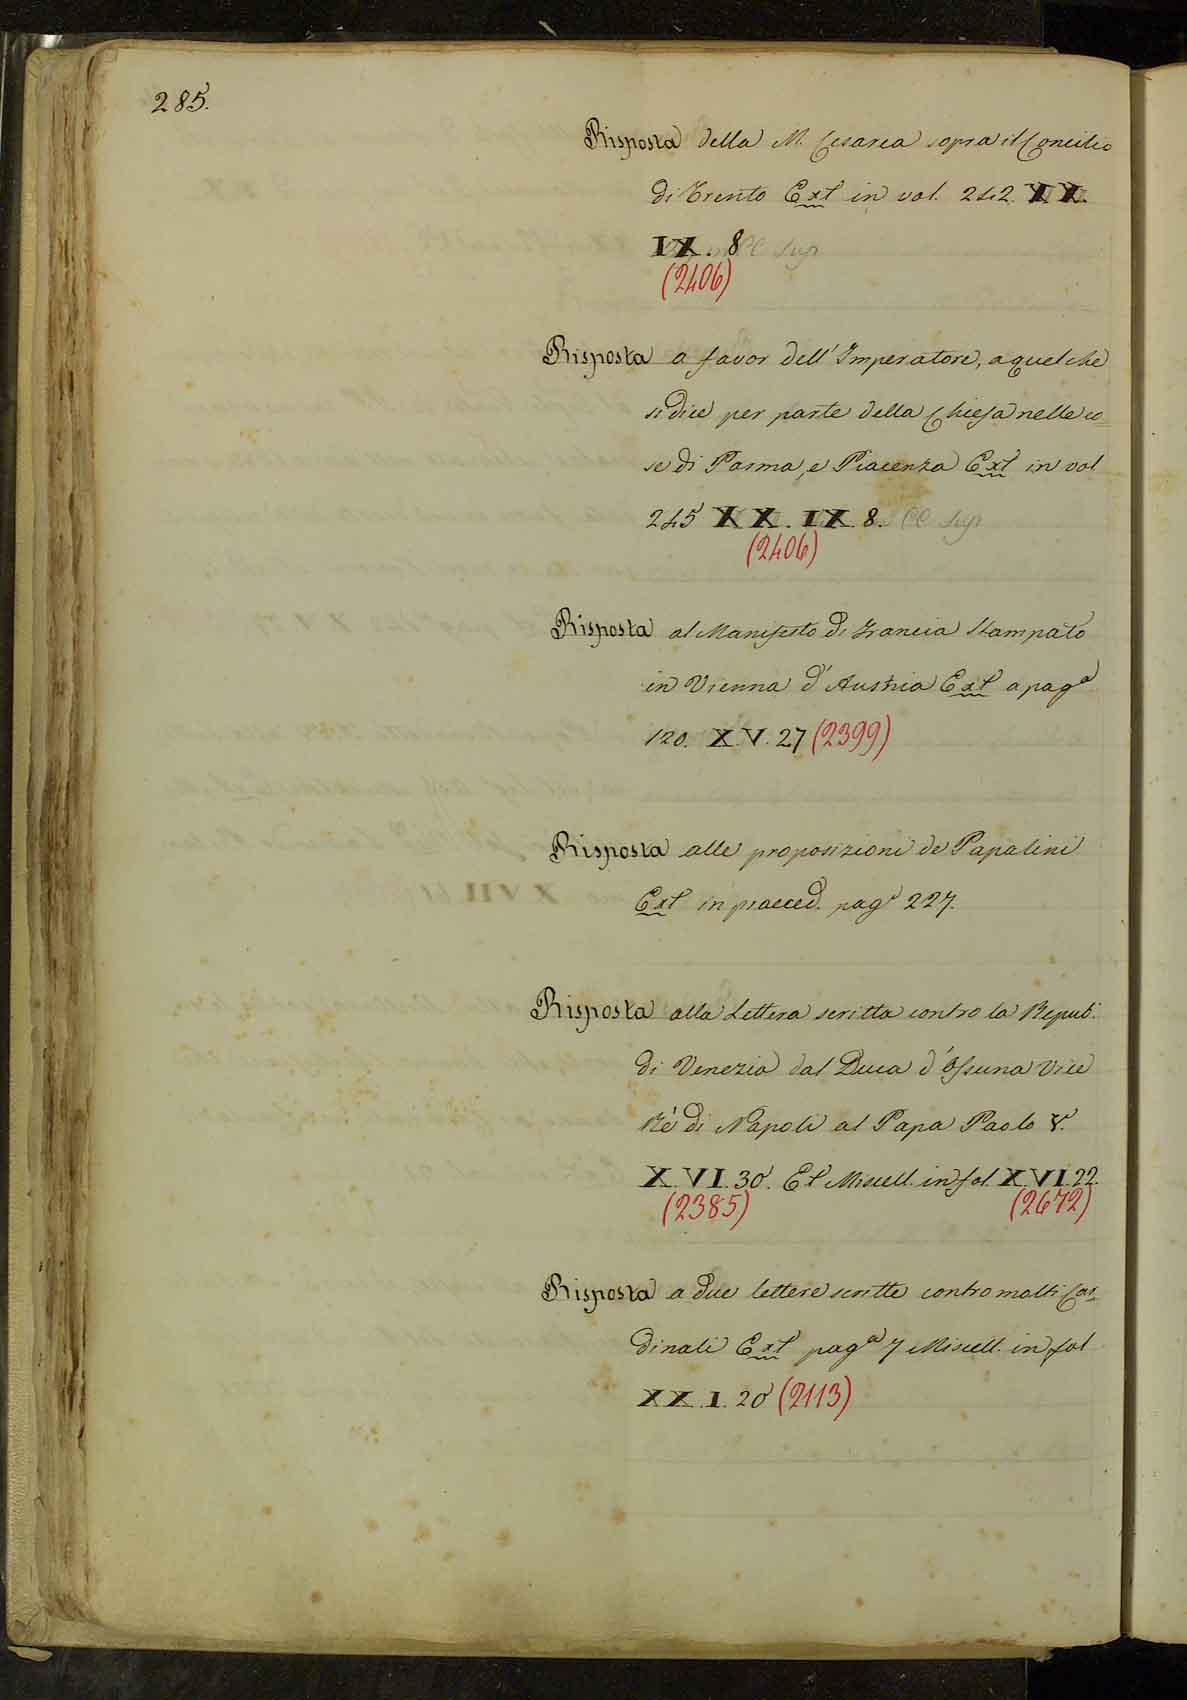 285.
Risposta della M. Cesarea sopra il Concilio
di Trento Ext in vol. 242. XX.
IX. 8
(2406)
Risposta a favor dell'Imperatore, a quel che
si dice per parte della Chiesa nelle co=
se di Parma, e Piacenza Ext in vol
245 XX. IX. 8.
(2406)
Risposta al Manifesto di Francia Stampato
in Vienna d'Austria Ext a pagª
120. XV. 27 (2399)
Risposta alle proposizioni de Papalini
Ext in praeced. pagª 227.
Risposta alla Lettera scritta contro la Repub.
di Venezia dal Duca d'Ossuna Vice
Rè di Napoli al Papa Paolo V.
XVI. 30. Et Miscell. in fol. XVI. 22.
(2385) (2672)
Risposta a due lettere scritte contro molti Car=
dinali Ext pagª 7 Miscell. in fol
XX. I. 20 (2113)